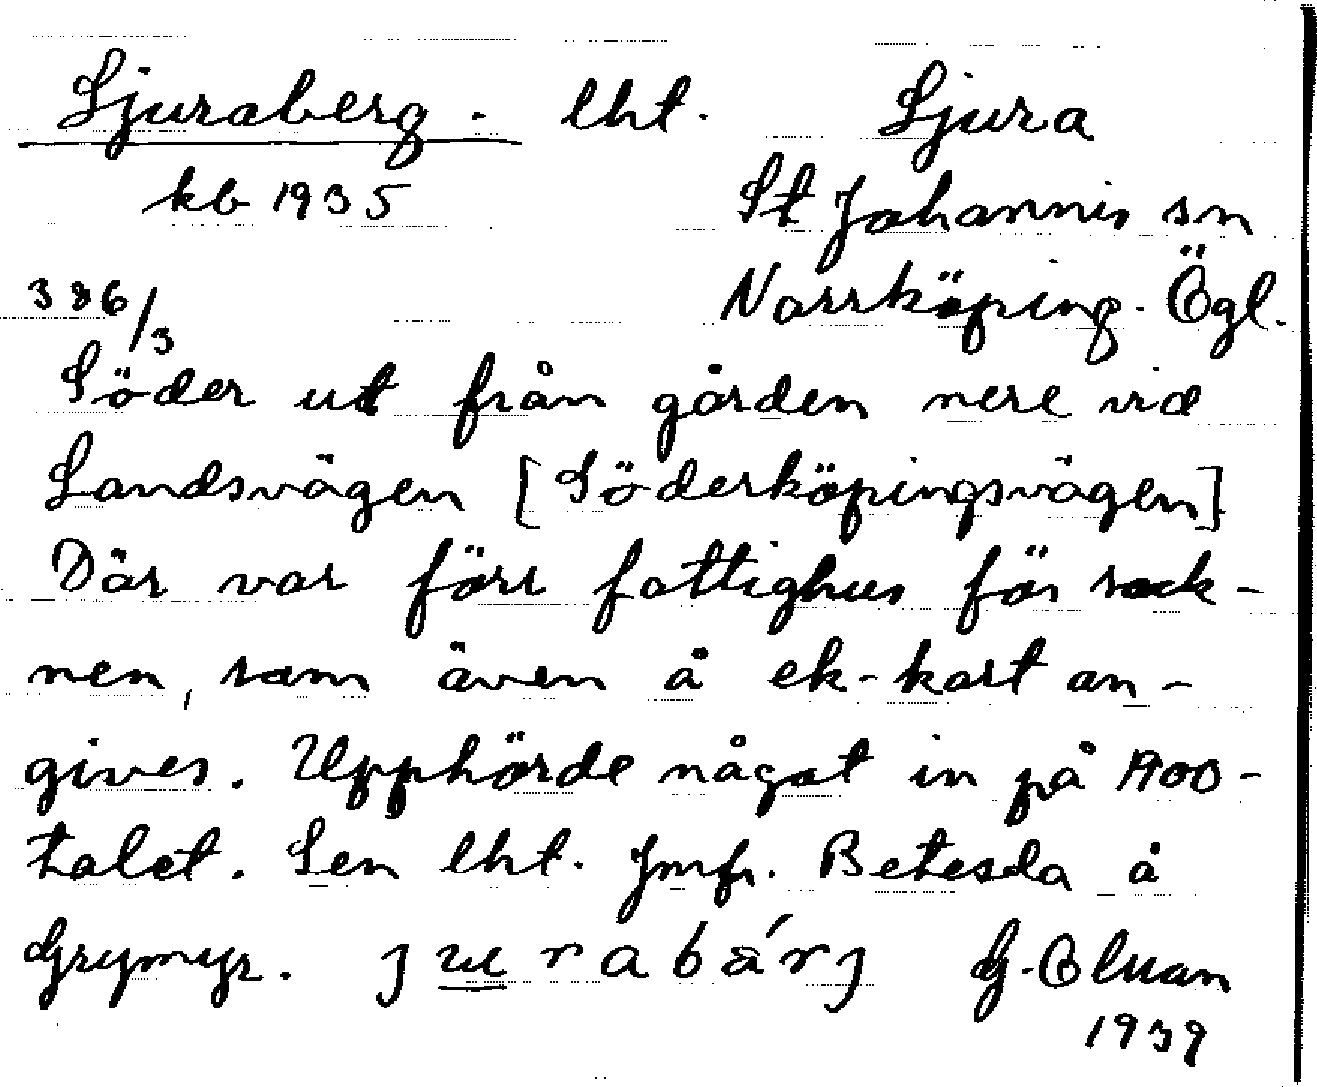 Ljuraberg. lht. Ljura
kb 1935 St Johannis sn
386/3 Norrköping. Ögl.
Söder ut från gården nere vid
Landsvägen [Söderköpingsvägen]
Där var förr fattighus för sock-
nen, som även å ek-kart an-
gives. Upphörde något in på 1900-
talet. Sen lht. Jmfr. Betesda å
Grymyr. ju̲rabárj G. Elman
1939